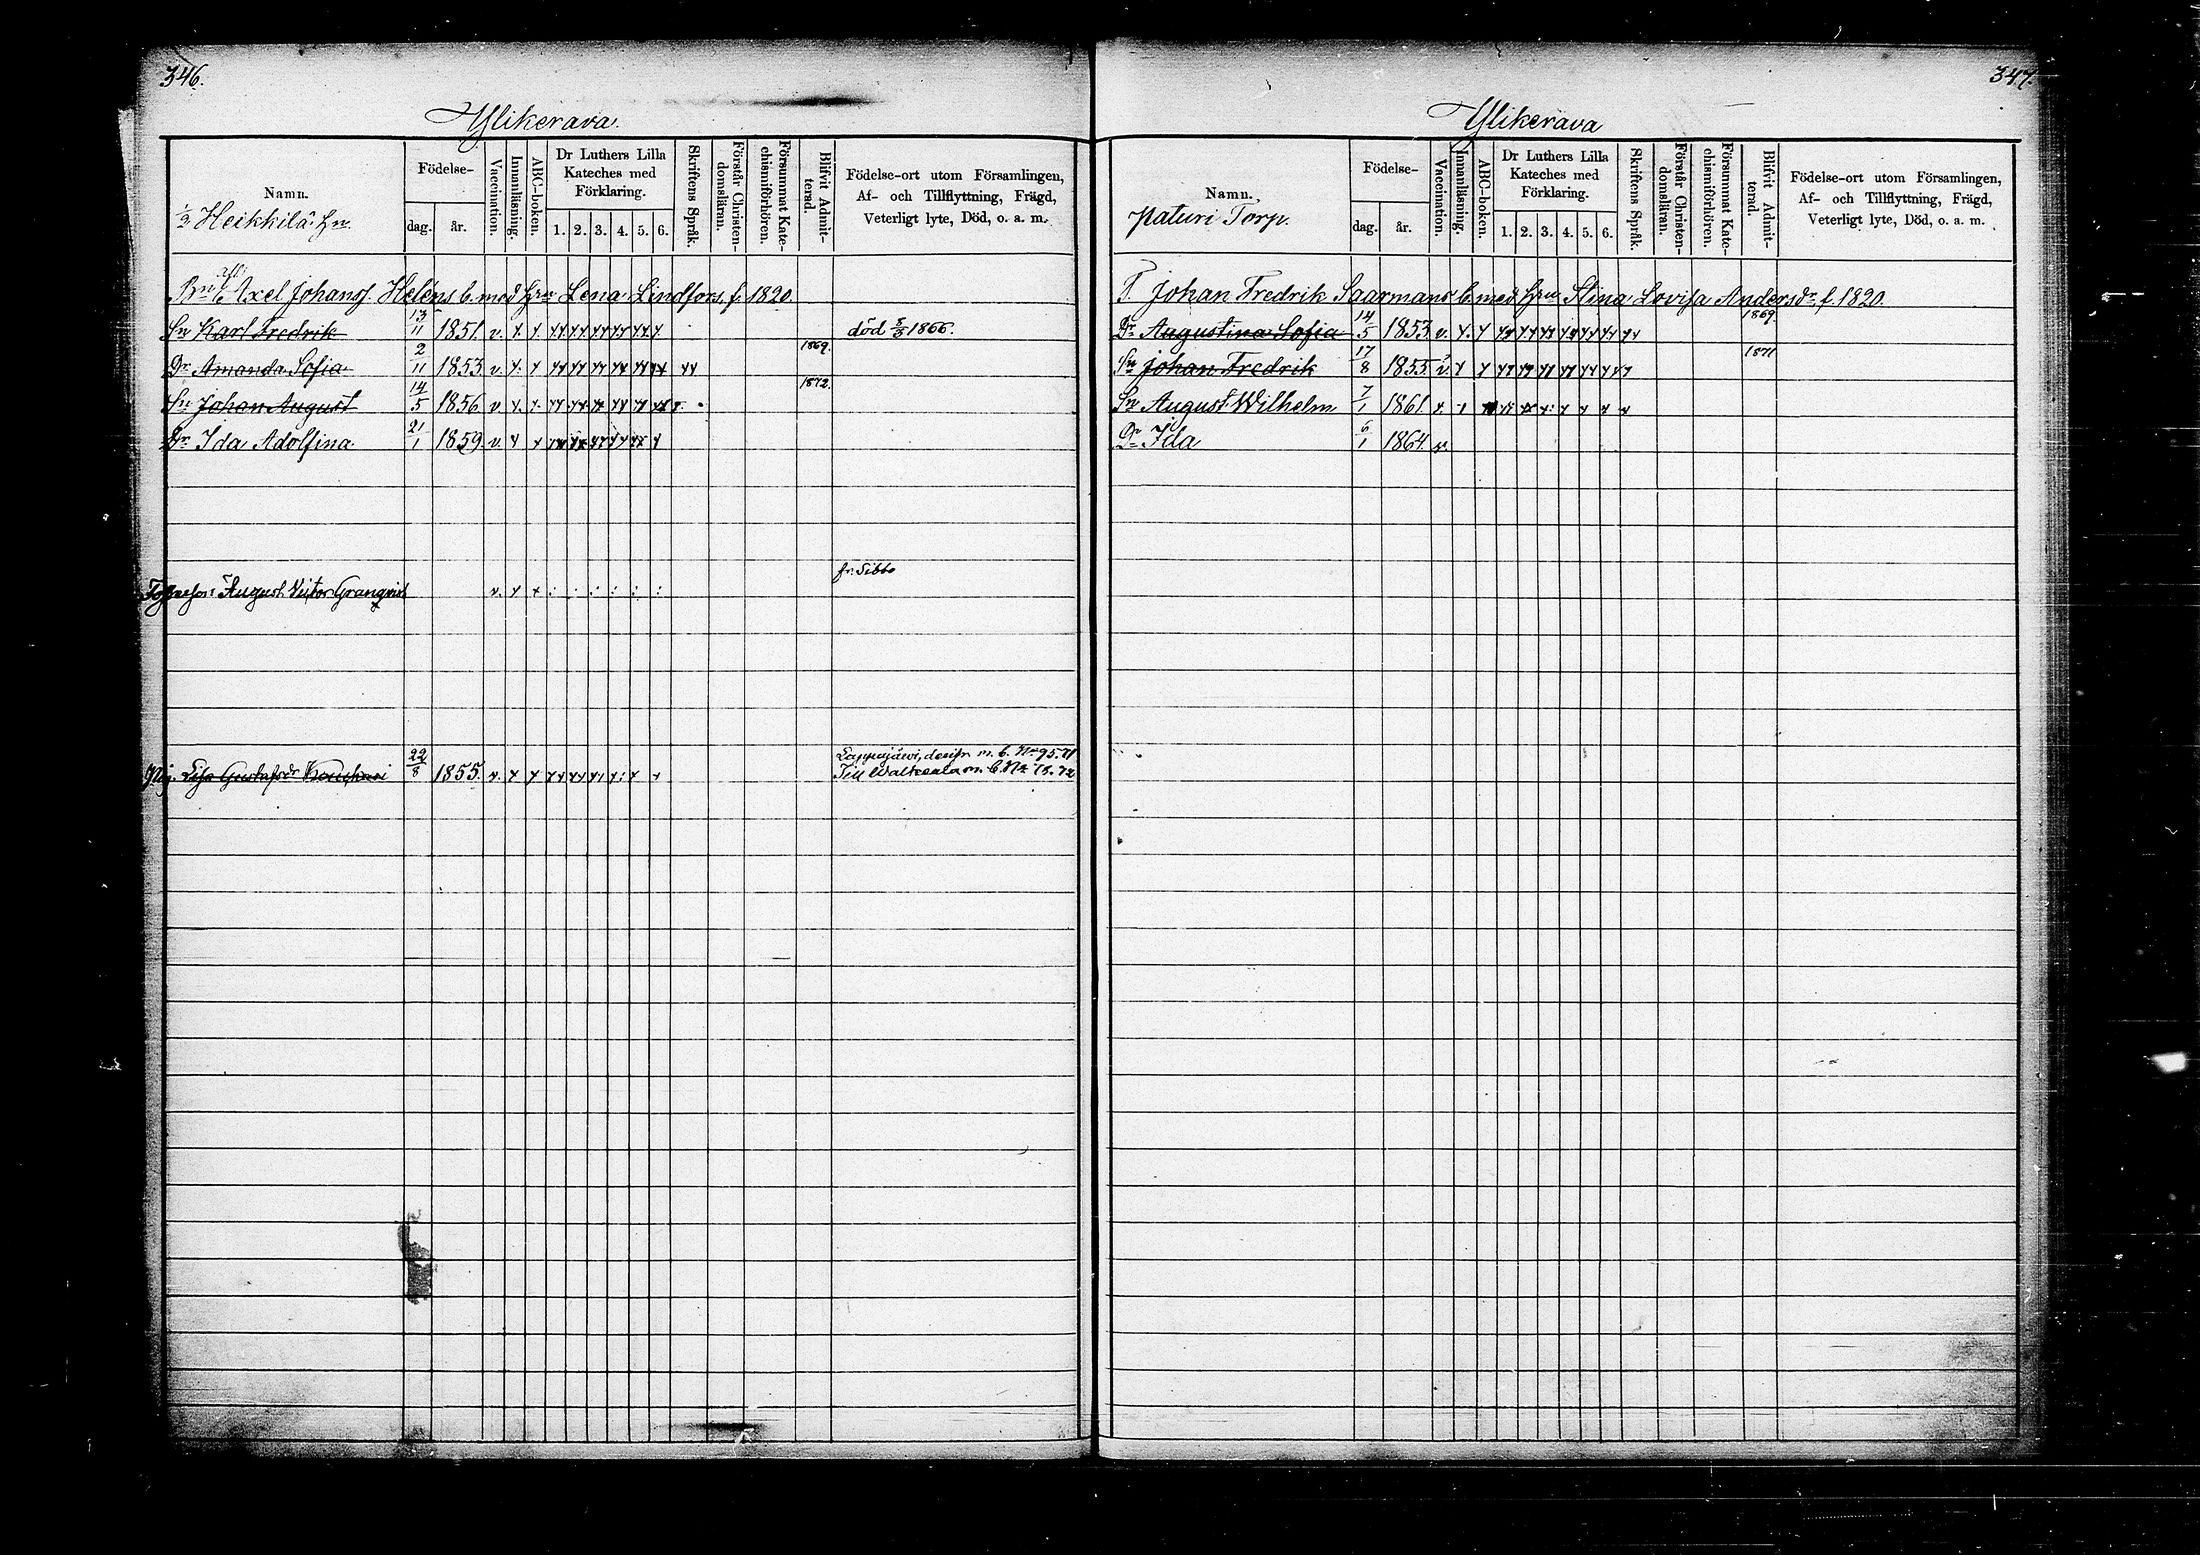 346.
Ylikerava.
Namn.
Födelse-
dag.
år.
Vaccination.
Innanläsning.
ABC-boken.
Dr Luthers Lilla
Kateches med
Förklaring.
1. 2. 3. 4. 5. 6.
Skriftens Språk.
Förstår Christen-
domsläran.
Försummat Kate-
chismiförhören.
Blifvit Admit-
terad.
Födelse-ort utom Församlingen,
Af- och Tillflyttning, Frägd,
Veterligt lyte, Död, o. a. m.
1/2 Heikkilä Hn.
Axel Johansf. Heléns b. med Hru Lena Lindfors, f. 1820.
Sn Karl Fredrik 13/11 1851. v. död 5/3 1866.
Dr Amanda Sofia 2/11 1853 v. 1869.
Sn Johan August 14/5 1856 v. 1872.
Dr Ida Adolfina 21/1 1859. v.
fr. Sibbo
August Victor Granqvist v.
Pig. Lisa Gustafsdr 22/8 1855. v. Lappajärvi, m. b. No 95. 71
Till Walkeala m. b. No 78. 72
347.
Ylikerava
Namn.
Födelse-
dag.
år.
Vaccination.
Innanläsning.
ABC-boken.
Dr Luthers Lilla
Kateches med
Förklaring.
1. 2. 3. 4. 5. 6.
Skriftens Språk.
Förstår Christen-
domsläran.
Försummat Kate-
chismiförhören.
Blifvit Admit-
terad.
Födelse-ort utom Församlingen,
Af- och Tillflyttning, Frägd,
Veterligt lyte, Död, o. a. m.
Paturi Torp.
T. Johan Fredrik Saarmans b. med Hru Stina Lovisa Andersdr, f. 1820.
Dr Augustina Sofia 14/5 1853 v. 1869
Sn Johan Fredrik 17/8 1855 v. 1871
Sn August Wilhelm 7/1 1861.
Dr Ida 6/1 1864. v.